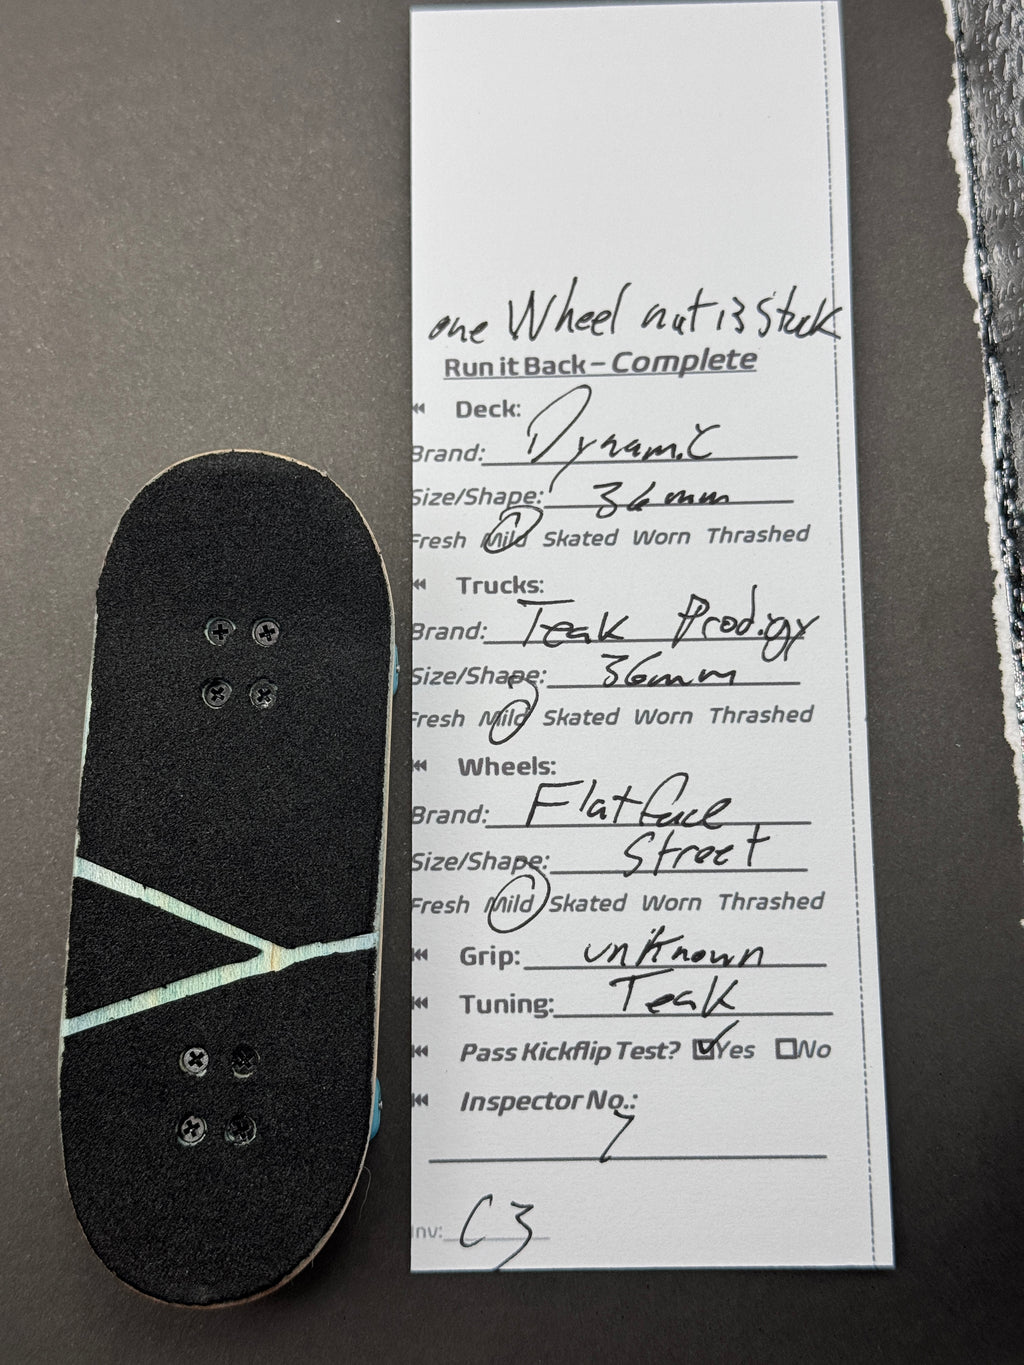 one Wheel nut is stuck
Run it Back – Complete
Deck:
Brand: Dynamic
Size/Shape: 36mm
Fresh Mild Skated Worn Thrashed
Trucks:
Brand: Teak Prodigy
Size/Shape: 36mm
Fresh Mild Skated Worn Thrashed
Wheels:
Brand: Flatface
Size/Shape: Street
Fresh Mild Skated Worn Thrashed
Grip: unknown
Tuning: Teak
Pass Kickflip Test? ☑Yes ☐No
Inspector No.:
7
Inv: C3